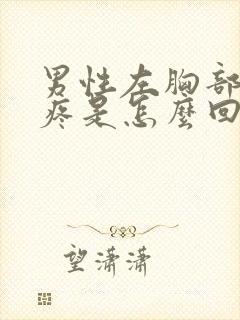 男性左胸部
疼是怎麼回
望瀟瀟